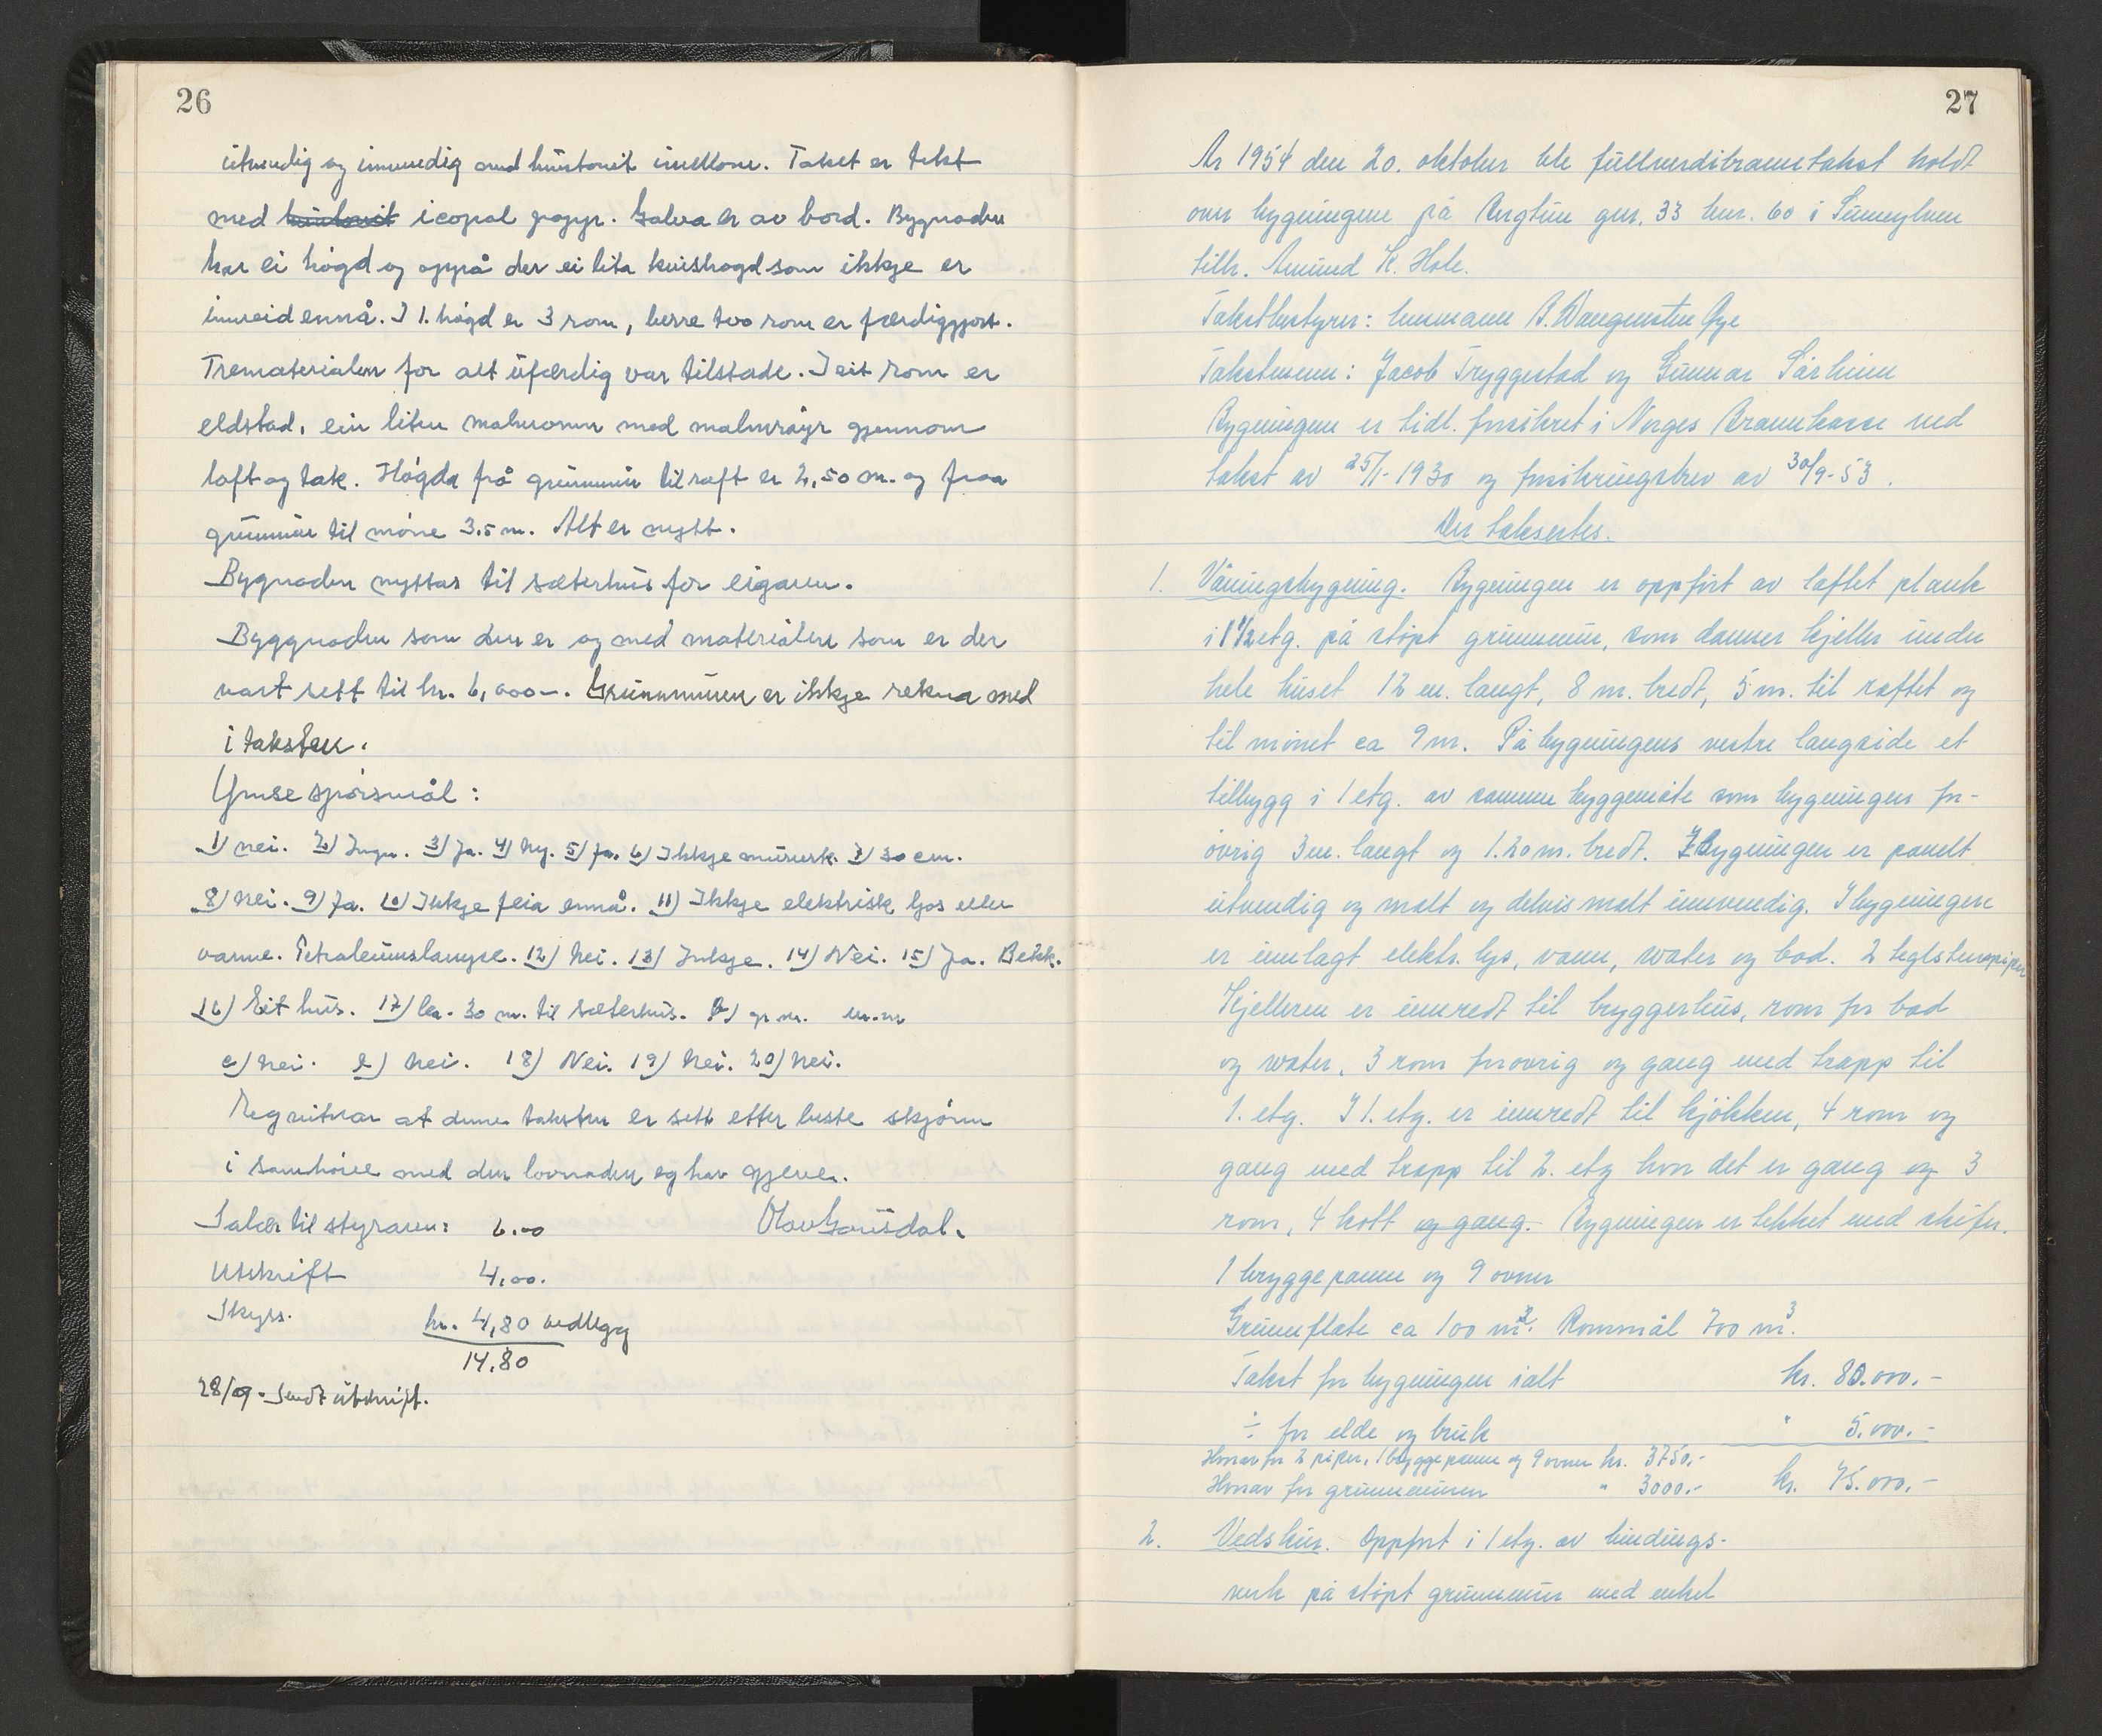 26
utvendig og innvendig med huntonit imellom. Taket er tekt
med huntonit icopal papp. Golva er av bord. Bygnaden
har ei høgd og oppå der ei lita kvisthøgd som ikkje er
innreid ennå. I 1. høgd er 3 rom, berre two rom er færdiggjort.
Trematerialen for alt ufærdig var tilstade. I eit rom er
eldstad, ein liten malmomn med malmrøyr gjennom
loft og tak. Høgda frå grunnmur til raft er 2,50 m. og fraa
grunnmur til møne 3.5 m. Alt er nytt.
Bygnaden nyttas til sæterhus for eigaren.
Byggnaden som den er og med materialen som er der
vart sett til kr. 6,000-. Grunnmuren er ikkje rekna med
i taksten.
Ymse spørsmål:
1) nei. 2) Ingen. 3) Ja. 4) Ny. 5) Ja. 6) Ikkje murverk. 7) 30 cm.
8) Nei. 9) Ja. 10) Ikkje feia ennå. 11) Ikkje elektrisk ljos eller
varme. Petroleumslampe. 12) Nei. 13) Inkje. 14) Nei. 15) Ja. Bekk.
16) Eit hus. 17) Ca. 30 m. til sæterhus.
c) Nei. Nei. 18) Nei. 19) Nei. 20) Nei.
Eg vitnar at denne taksten er sett etter beste skjønn
i samhøve med den lovnaden eg har gjeve.
Salær til styraren: 6.00 Olav Gausdal.
Utskrift 4,00.
Skyss. kr. 4,80 vedlegg
14,80
28/09. Sendt utskrift.
27
År 1954 den 20. oktober ble fullverdibranntakst holdt
over bygningene på Bergtun gnr. 33 bnr. 60 i Sunnylven
tilh. Amund K. Hole.
Takstbestyrer: lensmann B. Wangensten Øye
Takstmenn: Jacob Tryggestad og Gunnar Sårheim
Bygningen er tidl. forsikret i Norges Brannkasse ved
takst av 25/1-1930 og forsikringsbrev av 30/9-53.
Der taksertes.
1. Våningsbygning. Bygningen er oppført av laftet plank
i 1 1/2 etg. på støpt grunnmur, som danner kjeller under
hele huset 12 m. langt, 8 m. bredt, 5 m. til raftet og
til mønet ca 9 m. På bygningens vestre langside et
tilbygg i 1 etg. av samme byggemåte som bygningen for-
øvrig 3 m. langt og 1.20 m. bredt. Bygningen er panelt
utvendig og malt og delvis malt innvendig. I bygningen
er innlagt elektr. lys, vann, water og bad. 2 teglstenspiper
Kjelleren er innredt til bryggerhus, rom for bad
og water, 3 rom forøvrig og gang med trapp til
1. etg. I 1. etg. er innredt til kjøkken, 4 rom og
gang med trapp til 2. etg hvor det er gang og 3
rom, 4 kott og gang. Bygningen er tekket med skifer.
1 bryggepanne og 9 ovner
Grunnflate ca 100 m². Rommål 700 m³.
Takst for bygningen ialt kr. 80.000.-
÷ for elde og bruk " 5.000.-
Herav for 2 piper, 1 bryggepanne og 9 ovner kr. 3750.-
Herav for grunnmuren " 3000.- kr. 75.000.-
2. Vedskur. Oppført i 1 etg. av bindings-
verk på støpt grunnmur med enkel